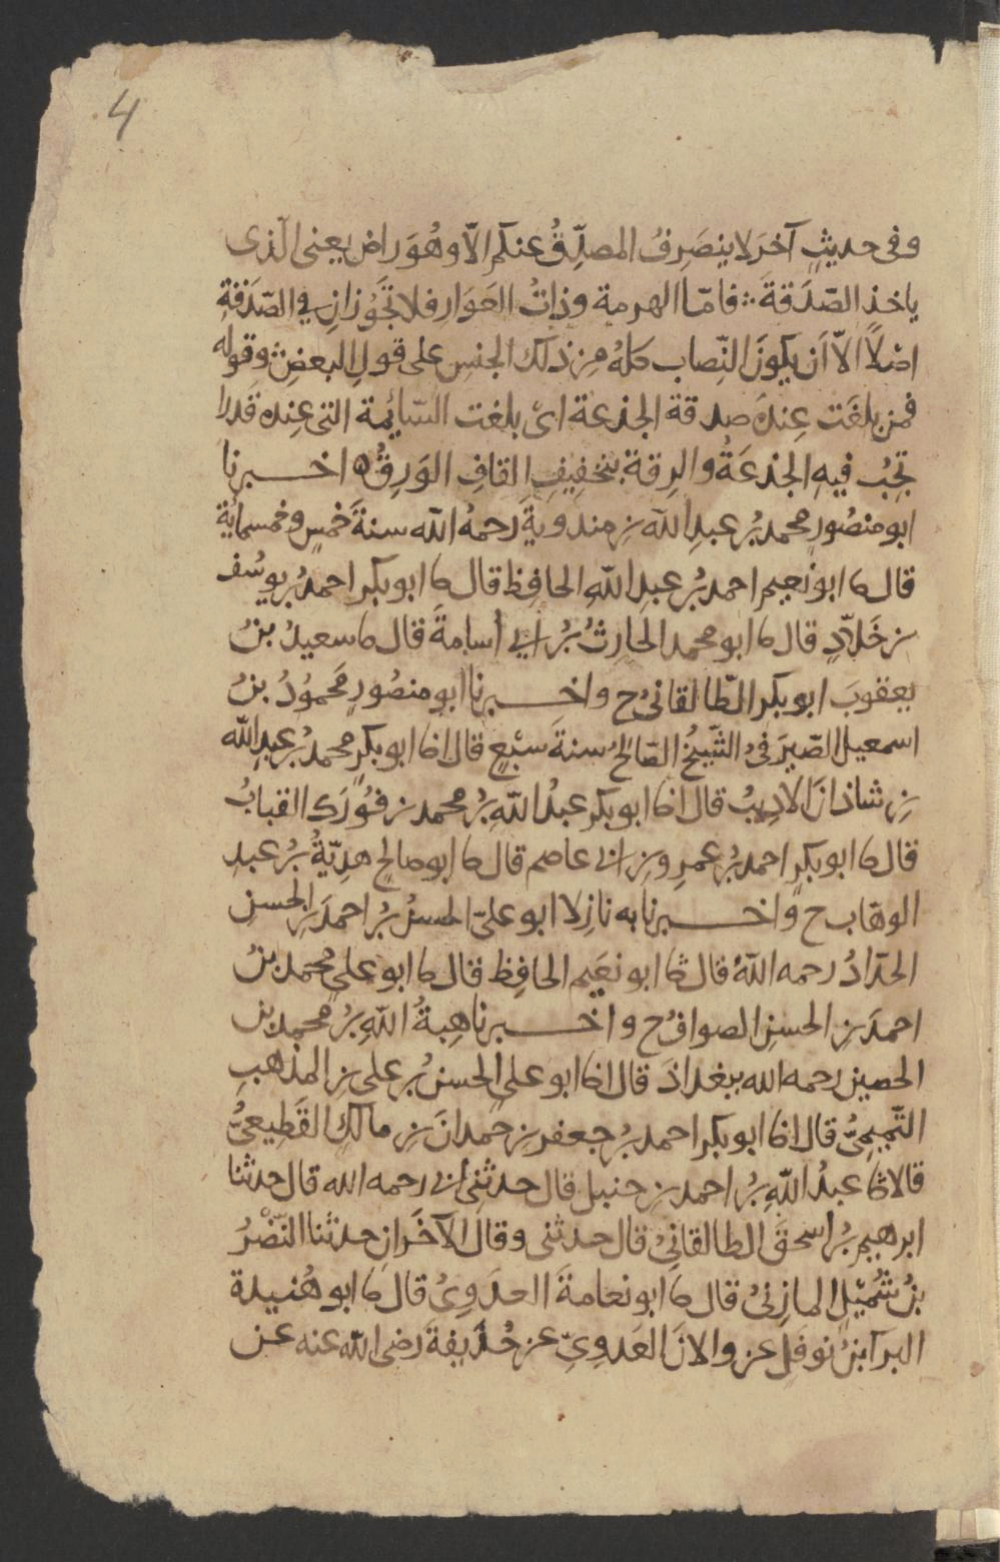 4
وفى حديثٍ آخرَ لا ينصَرِفُ المصدِّقُ عنكم الّا وهُوَ راضٍ يعنى الّذى
ياخذ الصّدَقةَ فامّا الهرمة وذاتُ العَوَارِ فلا تَجُوزانِ في الصّدَقةِ
اصْلاً الاّ اَن يكونَ النِّصاب كلهُ مِن ذلك الجنسِ على قول البعضِ وقوله
فمن بلغَت عِندَه صدقة الجذعة اىْ بلغت السّايمة التى عِنده قَدرا
تجِبُ فيهِ الجذعَةُ والرِقة بتخفِيفِ القافِ الوَرِقُ ه اخــبرنا
ابو منصُورٍ محمد بُن عبدِ الله بن مندويةَ رحمهُ الله سنةَ خمسٍ وخمسمايةٍ
قال ثا ابو نعيم احمد بُن عبدِ اللهِ الحافِظ قال ثا ابو بكر احمدُ بن يوسُف
بن خَلاّدٍ قال ثا ابو محمد الحَارِثُ بُن ابي أسامةَ قال ثا سعيدُ بنُ
يعقوبَ ابو بكر الطّالقانىُّ ح واخــبرنا ابو منصُورٍ محمُودُ بنُ
اسمعيل الصّيرَفىُّ الشّيخُ الصّالحُ سنةَ سبْعٍ قال انا ابو بكرٍ محمدُ بُن عبدِ الله
بنِ شاذانَ الاديبُ قال انا ابو بكر عبدُ اللهِ بُن محمد بن فُورَك القبابُ
قال ثا ابو بكرٍ احمدُ بُن عمرِو بنِ ابى عاصم قال ثا ابو صالح هدِيّةُ بُن عبدِ
الوهّاب ح واخــبرنا به نازِلا ابو علىّ الحسنُ بُن احمدَ بنِ الحسنِ
الحدّادُ رحمه اللهُ قال ثا ابو نعَيم الحافِظ قال ثا ابو علي محمد بنُ
احمدَ بنِ الحسنِ الصوافُ ح واخــبرنا هِبةُ اللهِ بُن محمد بن
الحصين رحمه الله ببغداذَ قال انا ابو علي الحسنُ بُن على بن المذهبِ
التّمِيمِىُّ قال انا ابو بكر احمد بُن جعفر بن حمدانَ بن مالكٍ القَطِيعىُّ
قالا ثا عبدُ اللهِ بُن احمد بن حنبل قال حدثنِى ابى رحمه الله قال حدثنا
ابرهيم بُن اسحقَ الطالقانِىُّ قال حدثنى وقال الآخَرانِ حدثنا النّضْرُ
بنُ شُمَيْلٍ المازِنىُّ قال ثا ابو نعامةَ العدَوِىُّ قال ثا ابو هُنيدة
البرآ بنُ نوفَلٍ عن والانَ العَدوِىّ عن حُذَيفةَ رضى الله عنه عن